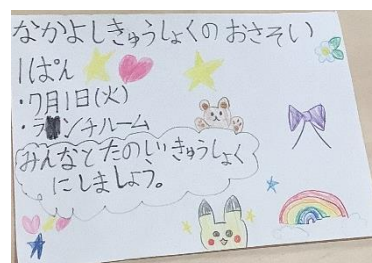 なかよしきゅうしょくの おさそい
1ぱん
・7月1日(火)
・ランチルーム
みんなとたのしいきゅうしょく
にしましょう。